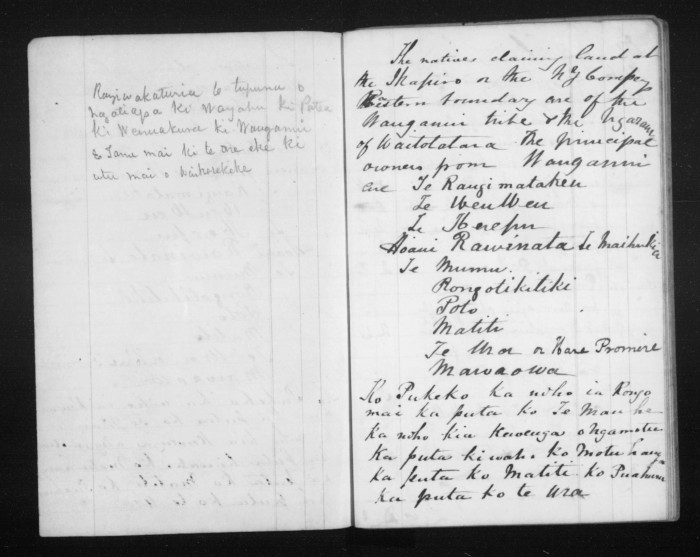 Rangiwakaturia te tupuna o
ngatiapa ki Wayahu ki Patea
ki Wenuakura ki Wanganui
& Tanu mai ki te are ehe ki
utu mai o Waikerekehe
The natives claiming land at
the Ikapiro or the NZ Compys
Eastern boundary are of the
Wanganui tribe & the Ngarauru
of Waitotatara The principal
owners from Wanganui
are Te Rangimatakeu
Te WeuWeu
Te Kerepu
Hoani Rawinata Te Maihukia
Te Mumu.
Rongotikitiki
Poto
Matiti
Te Ura or Hare Promire
Mawaowa
Ko Pukeko ka noho ia Rongo
mai ka puta ko Te Mauha
Ka noho kia Kewenga o Ngamotu
Ka puta kiwaho ko Motuhanga
ka puta ko Matiti ko Puahuru
ka puta ko te Ura